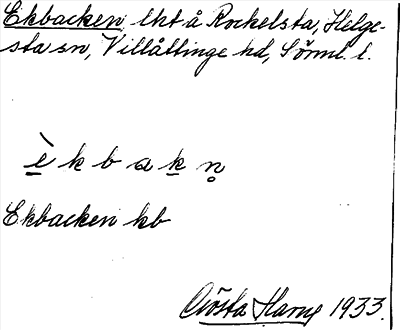 Ekbacken, lht å Rockelsta, Helge-
sta sn, Villåttinge hd, Sörml. l.
è k b a k n̥
Ekbacken kb
Gösta Harry 1933.